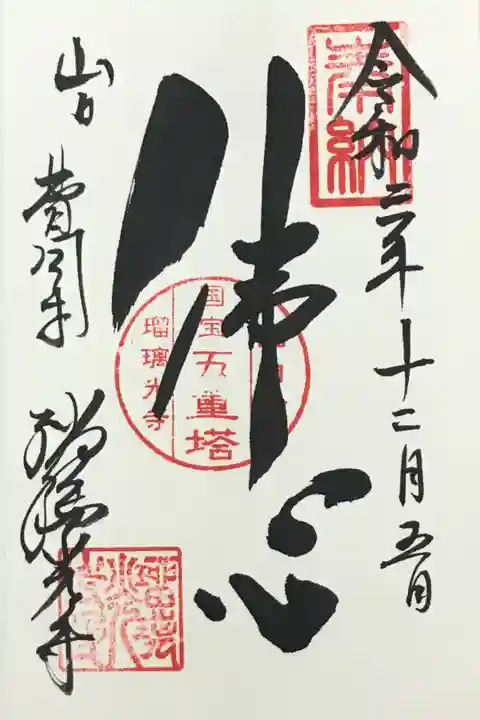 奉納
令和二年十二月五日
佛心
国宝
五重塔
瑠璃光寺
山口
曹洞宗
瑠璃光寺